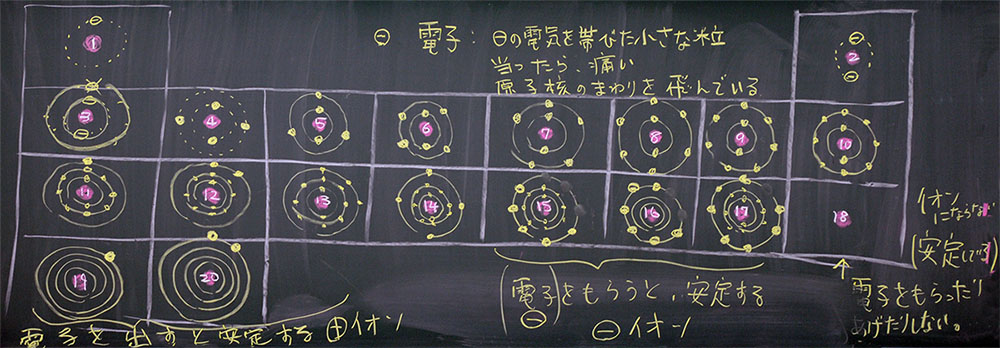 ⊖ 電子：⊖の電気を帯びた小さな粒
当ったら、痛い
原子核のまわりを飛んでいる
1 2
3 4 5 6 7 8 9 10
11 12 13 14 15 16 17 18
19 20
イオン
にならな
(安定して
電子をもらうと、安定する
⊖
⊖イオン
電子をもらったり
あげたりしない。
電子を出すと安定する ⊕イオン